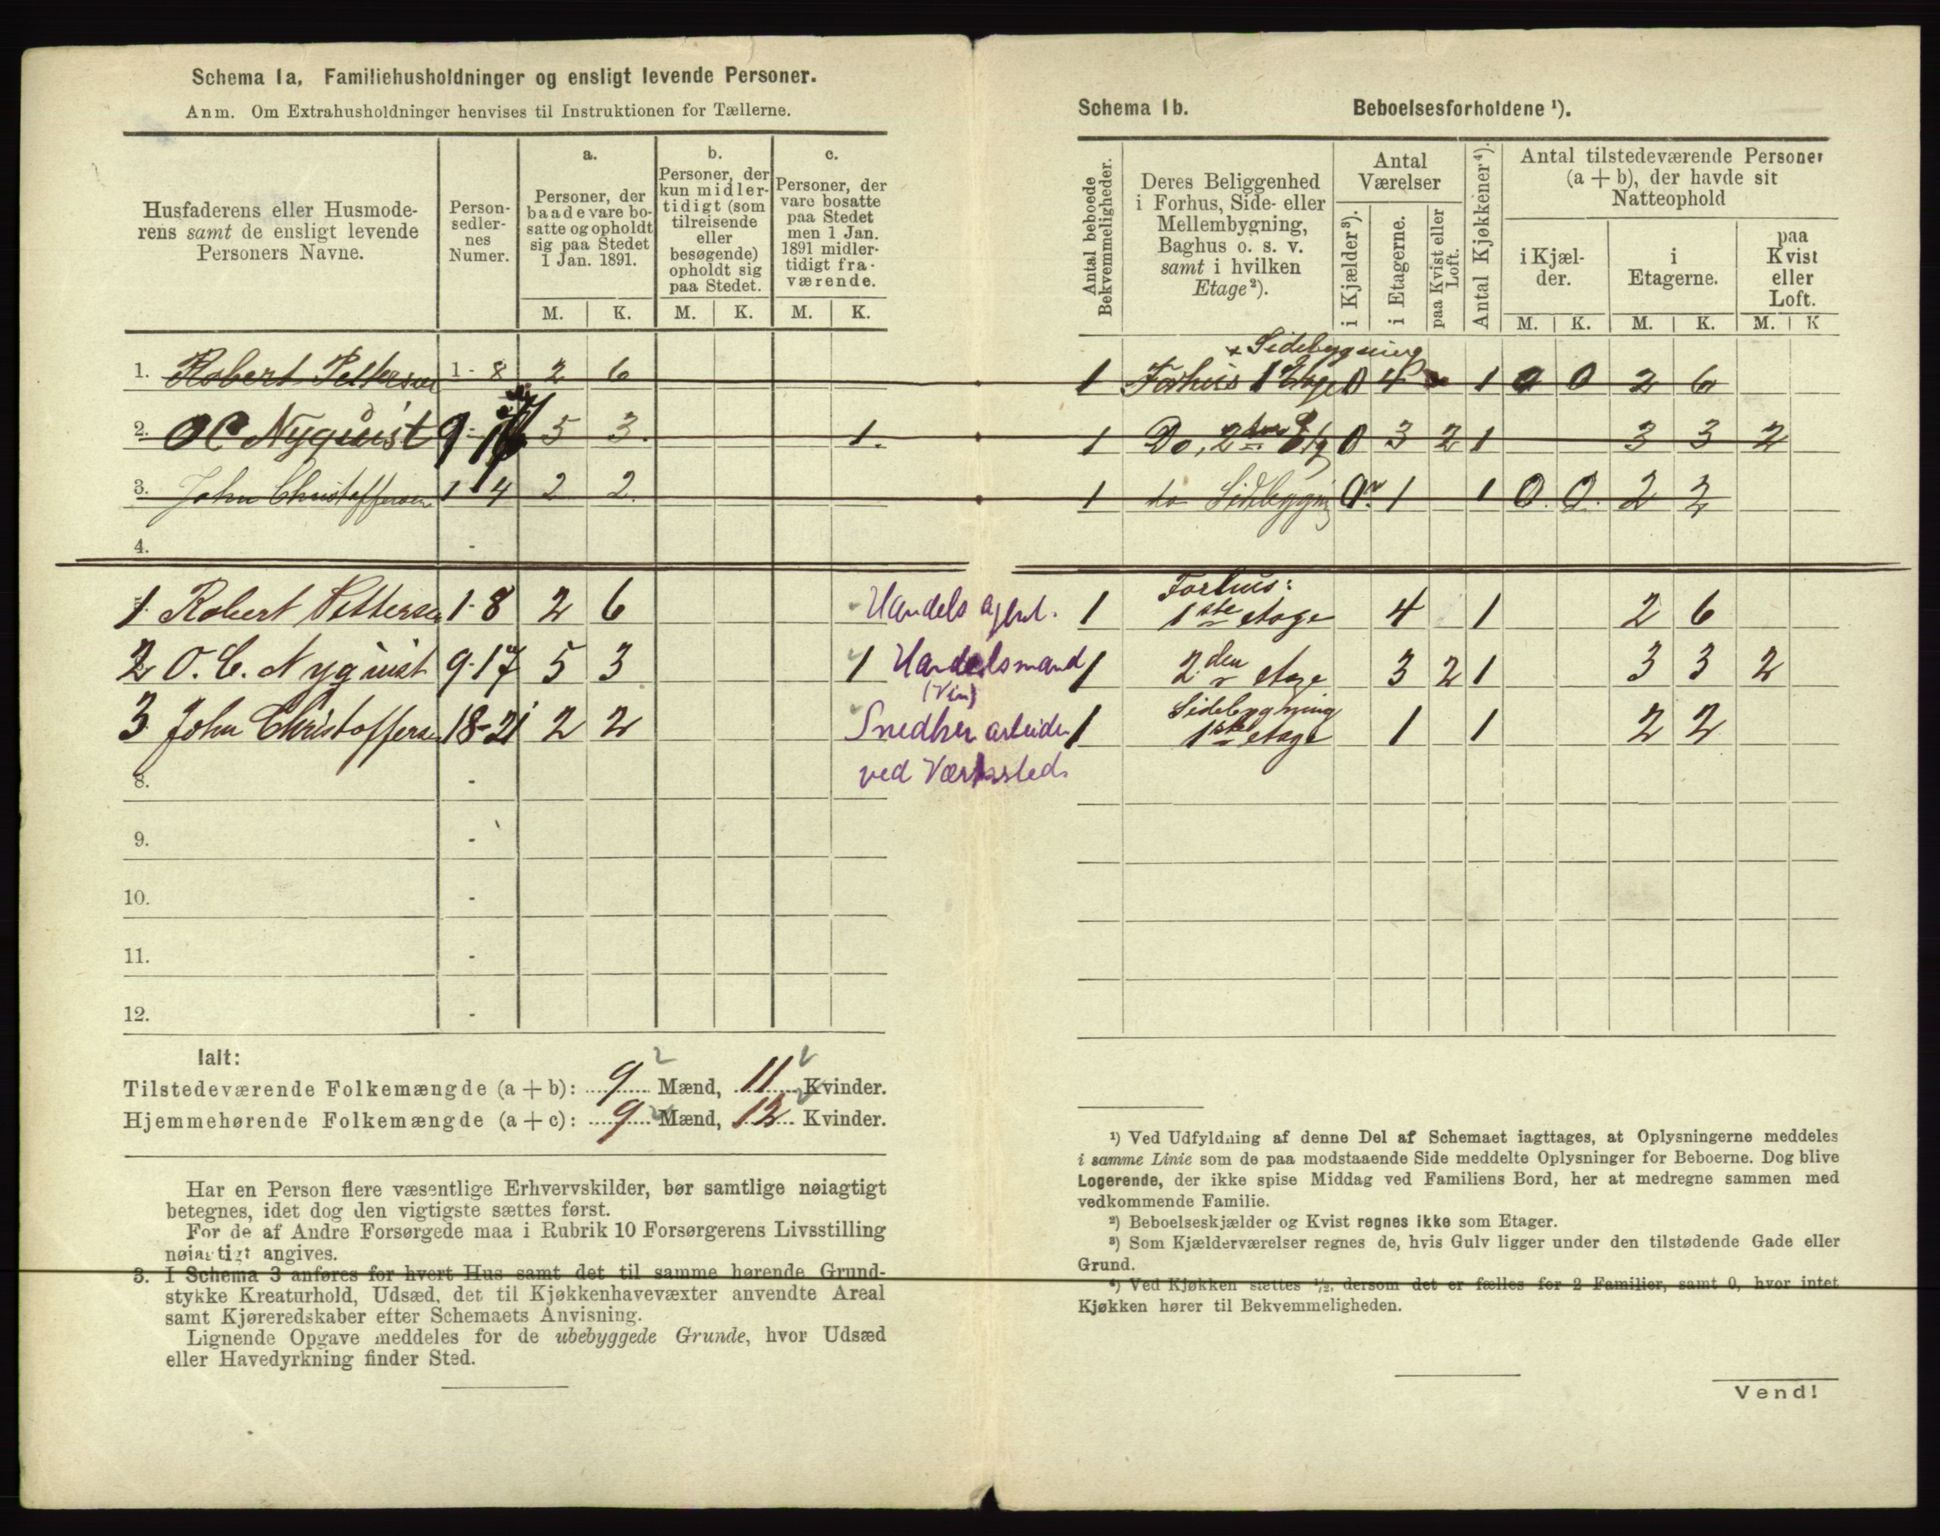 Schema 1a, Familiehusholdninger og ensligt levende Personer.
Anm. Om Extrahusholdninger henvises til Instruktionen for Tællerne.
Husfaderens eller Husmode-
rens samt de ensligt levende
Personers Navne.
Person-
sedler-
nes
Numer.
a.
Personer, der
baade vare bo-
satte og opholdt
sig paa Stedet
1 Jan. 1891.
b.
Personer, der
kun midler-
tidigt (som
tilreisende
eller
besøgende)
opholdt sig
paa Stedet.
c.
Personer, der
vare bosatte
paa Stedet
men 1 Jan.
1891 midler-
tidigt fra-
værende.
M. K. M. K. M. K.
1. Robert Pettersen 1-8 2 6
2. O C Nyquist 9- 5 3. 1.
3. John Christoffersen 1-4 2 2
4. -
1 Robert Pettersen 1-8 2 6 Handels agent.
2 O. C. Nyquist 9-17 5 3 1 Handelsmand
(Vin)
3 John Christoffersen 18-21 2 2 Snedker arbeider
ved Værksted.
8. -
9. -
10. -
11. -
12. -
Ialt:
Tilstedeværende Folkemængde (a + b): 9 Mænd, 11 Kvinder.
Hjemmehørende Folkemængde (a + c): 9 Mænd, 12 Kvinder.
Har en Person flere væsentlige Erhvervskilder, bør samtlige nøiagtigt
betegnes, idet dog den vigtigste sættes først.
For de af Andre Forsørgede maa i Rubrik 10 Forsørgerens Livsstilling
nøiagtigt angives.
3. I Schema 3 anføres for hvert Hus samt det til samme hørende Grund-
stykke Kreaturhold, Udsæd, det til Kjøkkenhavevæxter anvendte Areal
samt Kjøreredskaber efter Schemaets Anvisning.
Lignende Opgave meddeles for de ubebyggede Grunde, hvor Udsæd
eller Havedyrkning finder Sted.
Schema 1b. Beboelsesforholdene ¹).
Antal beboede
Bekvemmeligheder.
Deres Beliggenhed
i Forhus, Side- eller
Mellembygning,
Baghus o. s. v.
samt i hvilken
Etage²).
Antal
Værelser
i Kjælder³).
i Etagerne.
paa Kvist eller
Loft.
Antal Kjøkkener⁴).
Antal tilstedeværende Personer
(a + b), der havde sit
Natteophold
i Kjæl-
der.
i
Etagerne.
paa
Kvist
eller
Loft.
M. K. M. K. M. K
+ Sidebygning
1 Forhus 1 Etage 0 4 1 0 0 2 6
1 Do, 2den Etg 0 3 2 1 3 3 2
1 do Sidebygning 0 1 1 0 0. 2 2
Forhus:
1 1ste etage 4 1 2 6
1 2den etage 3 2 1 3 3 2
Sidebygning
1 1ste etage 1 1 2 2
¹) Ved Udfyldning af denne Del af Schemaet iagttages, at Oplysningerne meddeles
i samme Linie som de paa modstaaende Side meddelte Oplysninger for Beboerne. Dog blive
Logerende, der ikke spise Middag ved Familiens Bord, her at medregne sammen med
vedkommende Familie.
²) Beboelseskjælder og Kvist regnes ikke som Etager.
³) Som Kjælderværelser regnes de, hvis Gulv ligger under den tilstødende Gade eller
Grund.
⁴) Ved Kjøkken sættes ¹/₂, dersom det er fælles for 2 Familier, samt 0, hvor intet
Kjøkken hører til Bekvemmeligheden.
Vend!